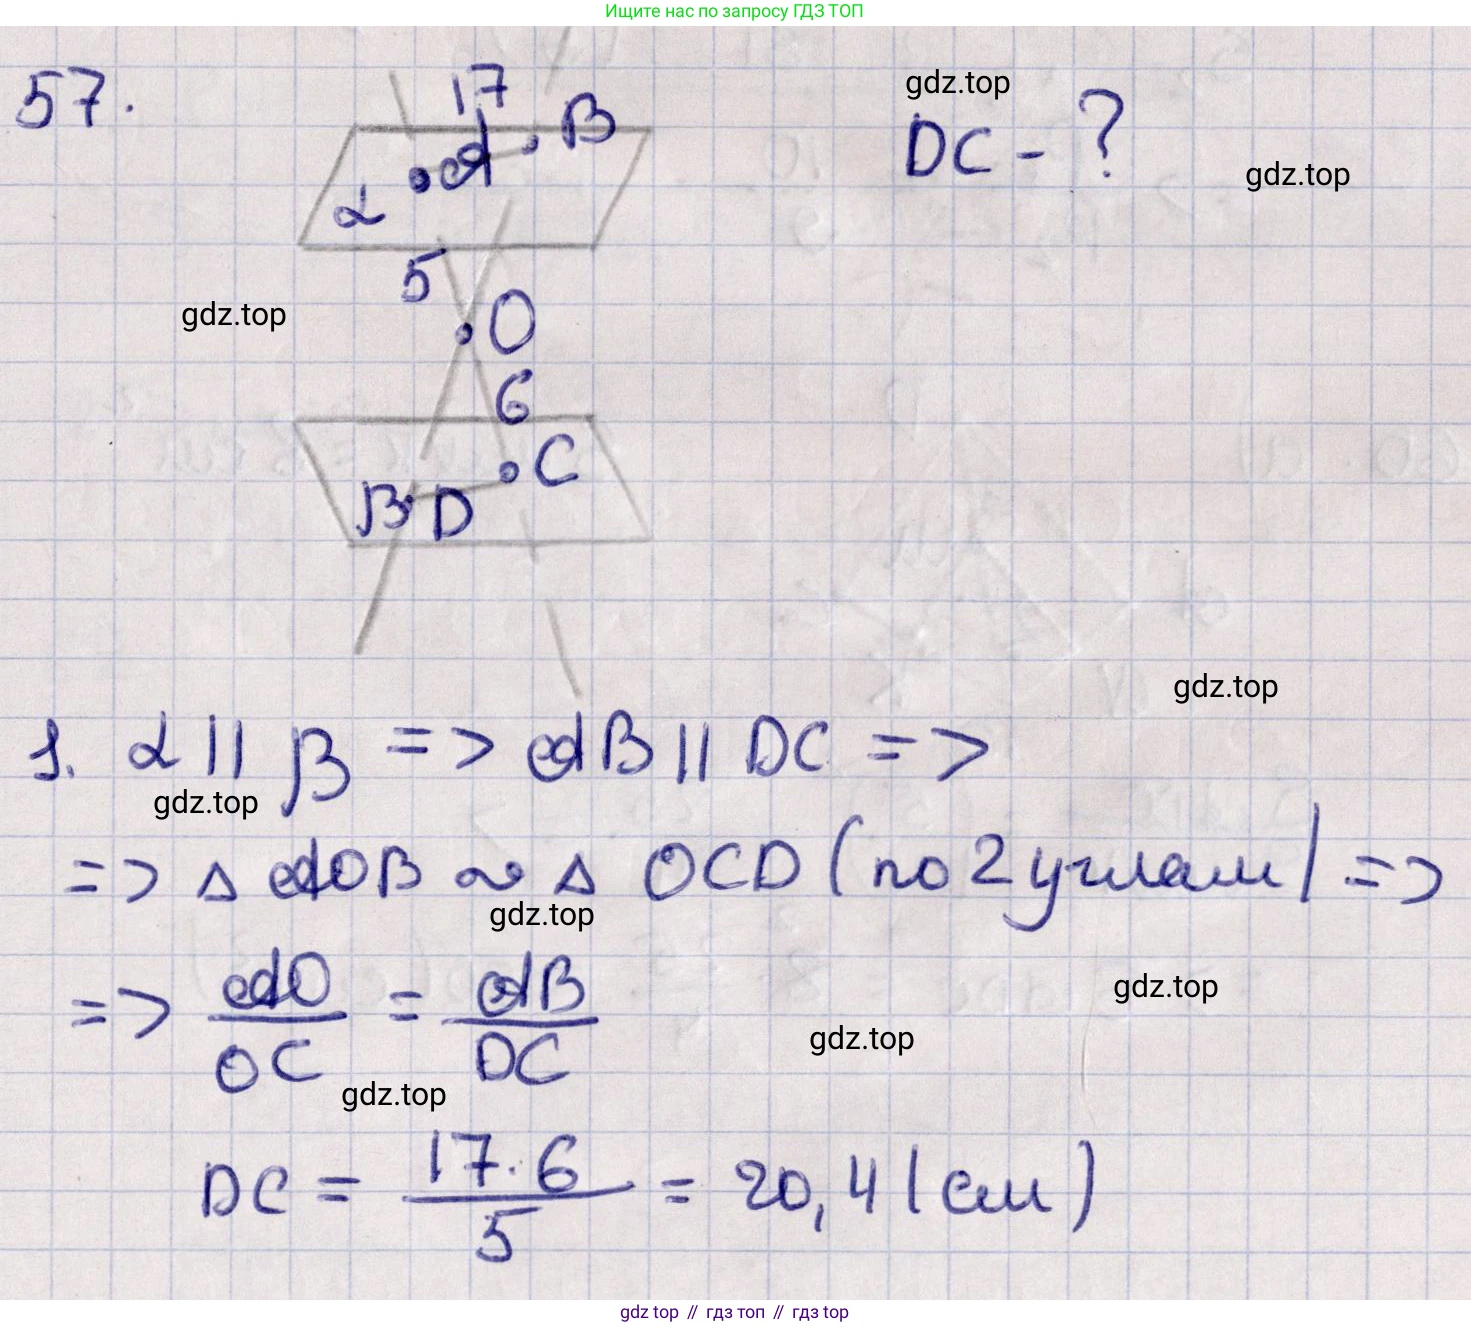 Ищите нас по запросу ГДЗ ТОП
57.
17
A
B
α
5
O
6
C
β
D
DC - ?
gdz.top
gdz.top
gdz.top
gdz.top
1. α || β => AB || DC =>
gdz.top
=> Δ AOB ~ Δ OCD (по 2 углам) =>
gdz.top
=> AO/OC = AB/DC
gdz.top
gdz.top
gdz.top
DC = 17·6/5 = 20,4 (см)
gdz top // гдз топ // гдз top